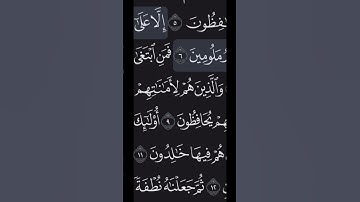 حَٰفِظُونَ ٥ إِلَّا عَلَىٰٓ
مَلُومِينَ ٦ فَمَنِ ٱبْتَغَىٰ
وَٱلَّذِينَ هُمْ لِأَمَٰنَٰتِهِمْ
يُحَافِظُونَ ٩ أُو۟لَٰٓئِكَ
هُمْ فِيهَا خَٰلِدُونَ ١١
١٢ ثُمَّ جَعَلْنَٰهُ نُطْفَةً